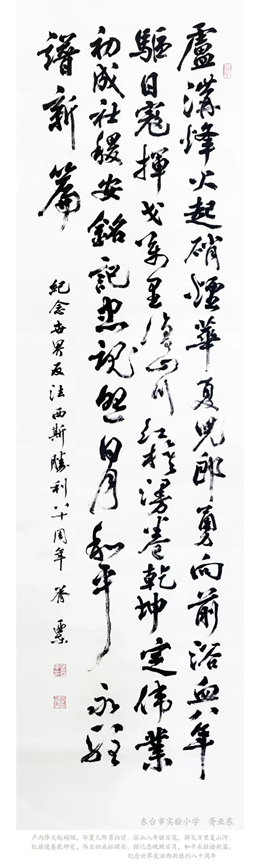 盧溝烽火起硝煙華夏兒郎勇向前浴血八年
驅日寇揮戈萬里復山川紅旗漫卷乾坤定偉業
初成社稷安銘記忠魂照日月和平永駐
譜新篇
紀念世界反法西斯勝利八十周年 胥亞東
东台市实验小学 胥亚东
卢沟烽火起硝烟，华夏儿郎勇向前。浴血八年驱日寇，挥戈万里复山河。
红旗漫卷乾坤定，伟业初成社稷安。铭记忠魂照日月，和平永驻谱新篇。
纪念世界反法西斯胜利八十周年